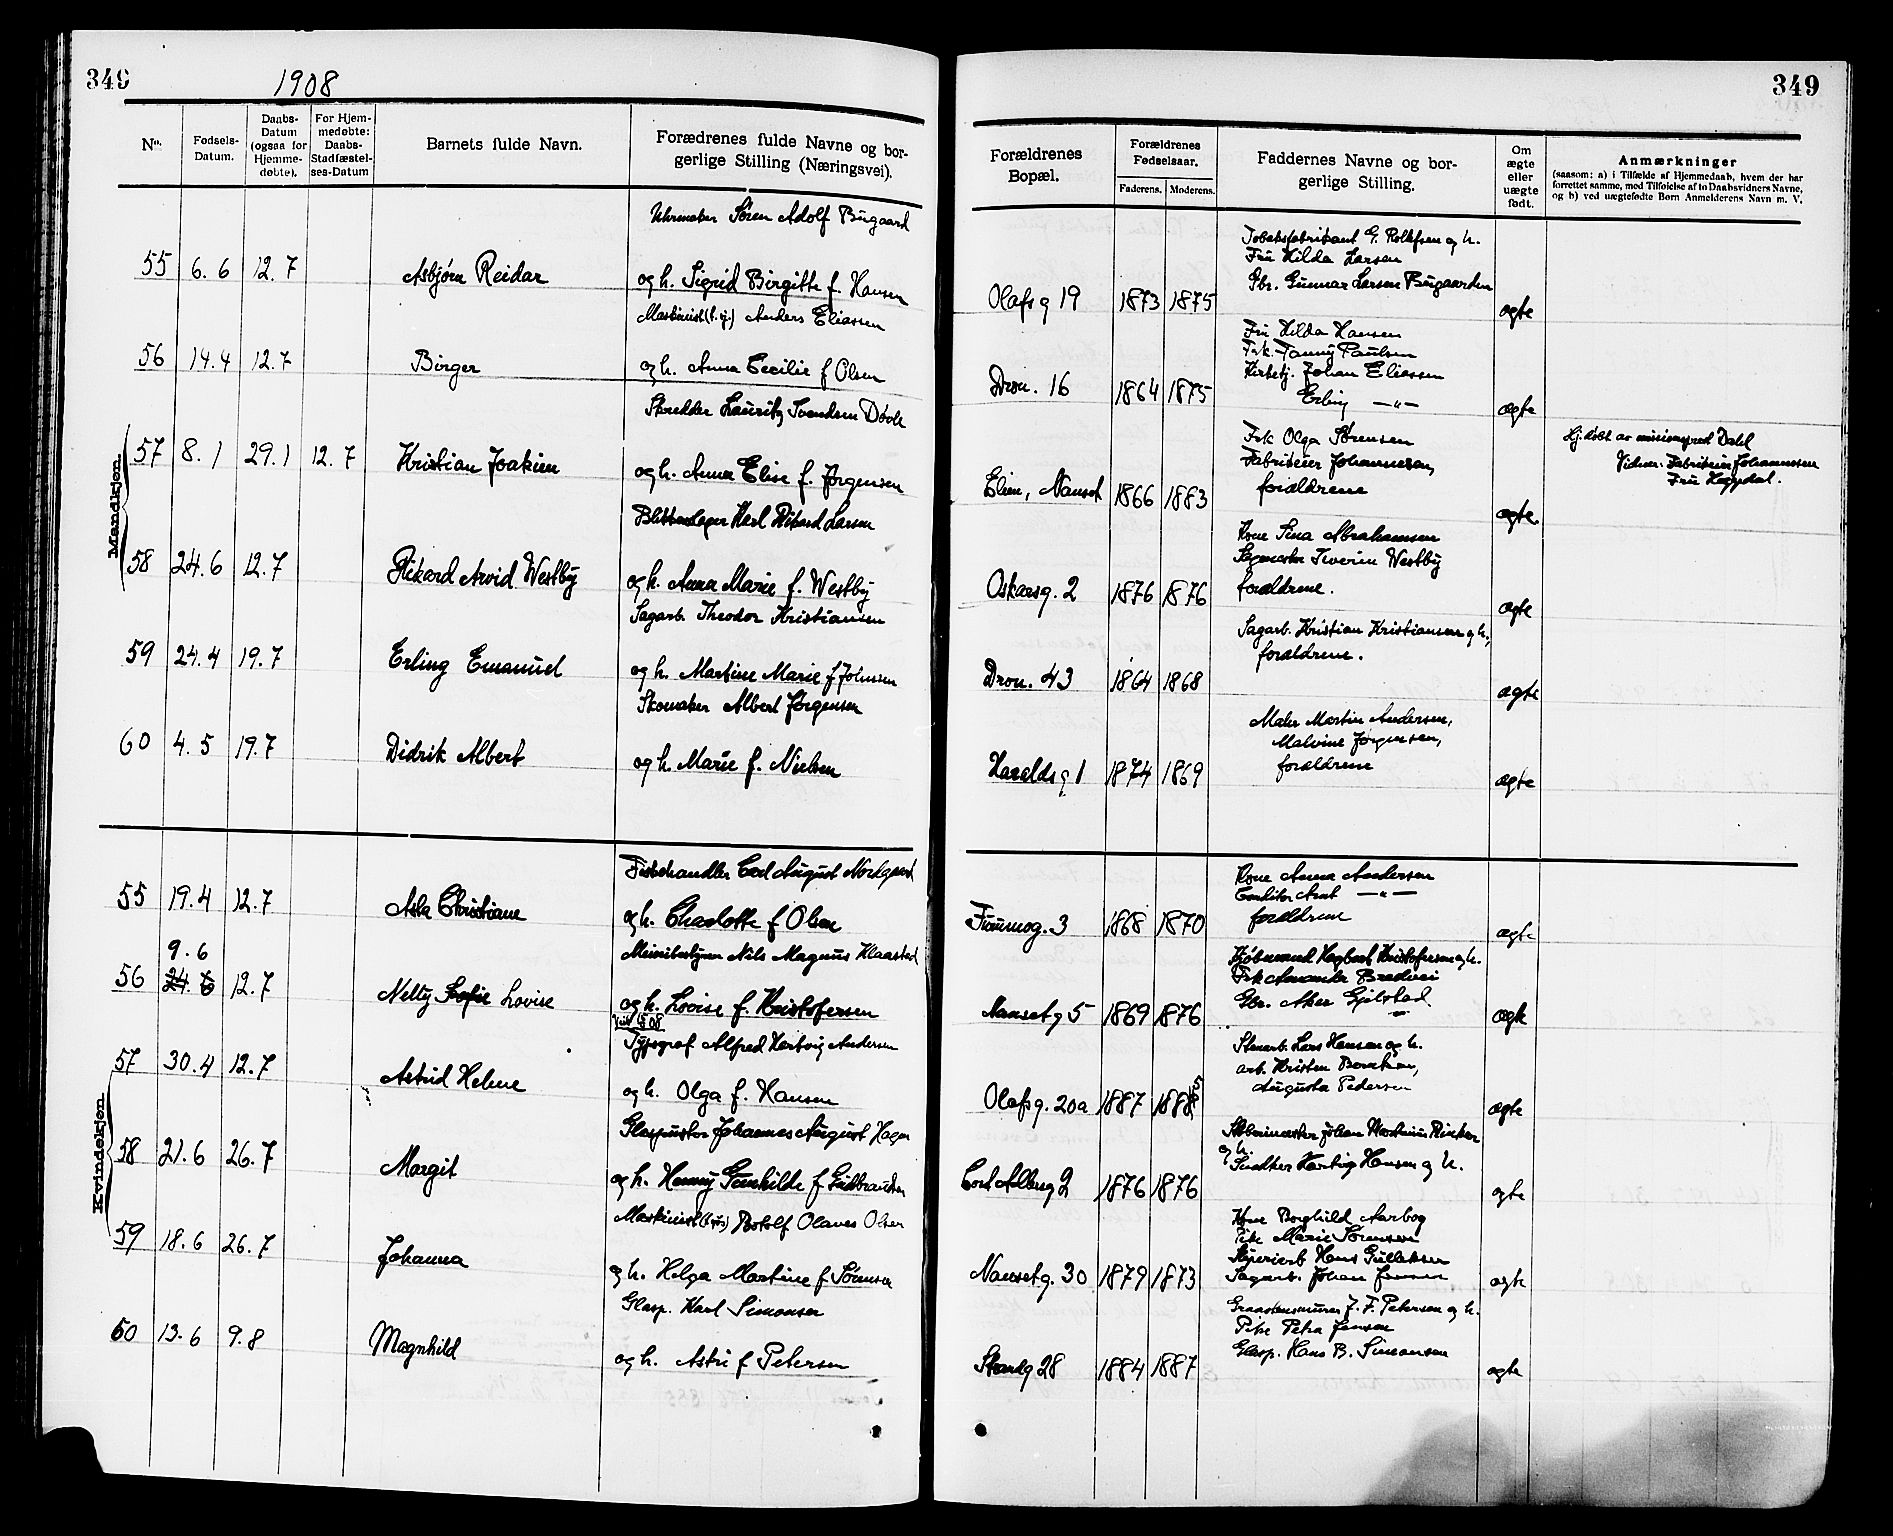 349
1908
349
No.
Fødsels-Datum.
Daabs-Datum (ogsaa for Hjemmedøbte).
For Hjemmedøbte: Daabs-Stadfæstelses-Datum
Barnets fulde Navn.
Forædrenes fulde Navne og borgerlige Stilling (Næringsvei).
Forældrenes Bopæl.
Forældrenes Fødselsaar.
Faderens.
Moderens.
Faddernes Navne og borgerlige Stilling.
Om ægte eller uægte født.
Anmærkninger
(saasom: a) i Tilfælde af Hjemmedaab, hvem der har
forrettet samme, med Tilføielse af to Daabsvidners Navne,
og b) ved uægtefødte Børn Anmelderens Navn m. V.
Mandkjøn
Uhrmaker Søren Adolf Bugaard
55 6.6 12.7 Asbjørn Reidar og h. Sigrid Birgitte f. Hansen
Olafsg 19 1873 1875 ægte
Tobaksfabrikant G. Rolfsen og h.
Fru Hilda Larsen
Gbr. Gunnar Larsen Bugaarden
Maskinist Anders Eliassen
56 14.4 12.7 Birger og h. Anna Cecilie f Olsen
Dron. 16 1864 1875 ægte
Fru Hilda Hansen
Frk. Fanny Paulsen
Kirketj. Johan Eliassen
Erling —"—
Skredder Lauritz Svendsen Døvle
57 8.1 29.1 12.7 Kristian Joakim og h. Anna Elise f. Jørgensen
Nanset 1866 1883 ægte
Frk Olga Sørensen
Fabrikeier Johannesen,
forældrene
Hj. døbt av missionspred Dahl
Vidner: Fabrikeier Johannessen
Fru Heggdal.
Karl Rikard Larsen
58 24.6 12.7 Rikard Arvid Westby og h. Anna Marie f. Westby
Oskarsg. 2 1876 1876 ægte
Kone Sina Abrahamsen
Sagmester Severin Westby
forældrene.
Sagarb. Theodor Kristiansen
59 24.4 19.7 Erling Emanuel og h. Martine Marie f Johnsen
Dron. 43 1864 1868 ægte
Sagarb. Kristian Kristiansen og h.,
forældrene.
Skomaker Albert Jørgensen
60 4.5 19.7 Didrik Albert og h. Marie f. Nielsen
Haraldsg 1 1874 1869 ægte
Maler Martin Andersen,
Malvine Jørgensen,
forældrene
Kvindekjøn
Fiskehandler Carl August Nordgaard
55 19.4 12.7 Asta Christiane og h. Charlotte f Olsen
3 1868 1870 ægte
Kone Anna Andersen
Conditor Arnt —"—
forældrene
Meieribestyrer Nils Magnus Klaastad
9.6
56 24.6 12.7 Nelly Sofie Lovise og h. Lovise f. Kristofersen
Nansetg 5 1869 1876 ægte
Kjøbmand Hagbart Kristofersen og h.
Frk Amanda
Gbr.
Typograf Alfred Hartvig Andersen
57 30.4 12.7 Astrid Helene og h. Olga f. Hansen
Olafsg. 20a 1887 1888 5 ægte
Stenarb. Lars Hansen og h.
arb. Kristen
Augusta Pedersen
Glaspuster Johannes August Hagen
58 21.6 26.7 Margit og h. Henny Gunhilde f Gudbrandsen
Cort Adlersg 2 1876 1876 ægte
Johan
og h.
Snedker Hartvig Hansen og h.
Maskinist Botolf Olaves Olsen
59 18.6 26.7 Johanna og h. Helga Martine f Sørensen
Nansetg. 30 1879 1873 ægte
Kone Borghild Aarbog
Pike Marie Sørensen
Hans Gulliksen
Sagarb. Johan Jensen
Glasp. Karl Simonsen
60 13.6 9.8 Magnhild og h. Astri f Petersen
28 1884 1887 ægte
Graastensmurer J. F. Petersen og h.
Pike Petra Jensen
Glasp. Hans B. Simonsen